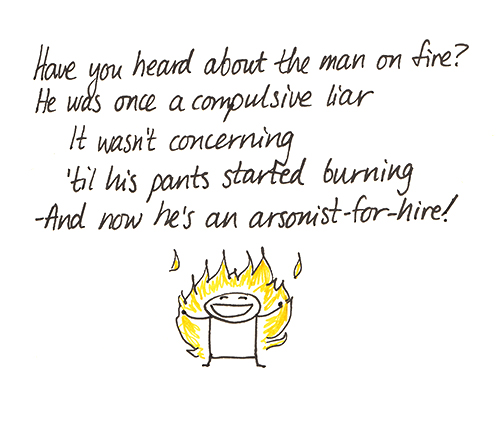 Have you heard about the man on fire?
He was once a compulsive liar
It wasn't concerning
'til his pants started burning
-And now he's an arsonist-for-hire!